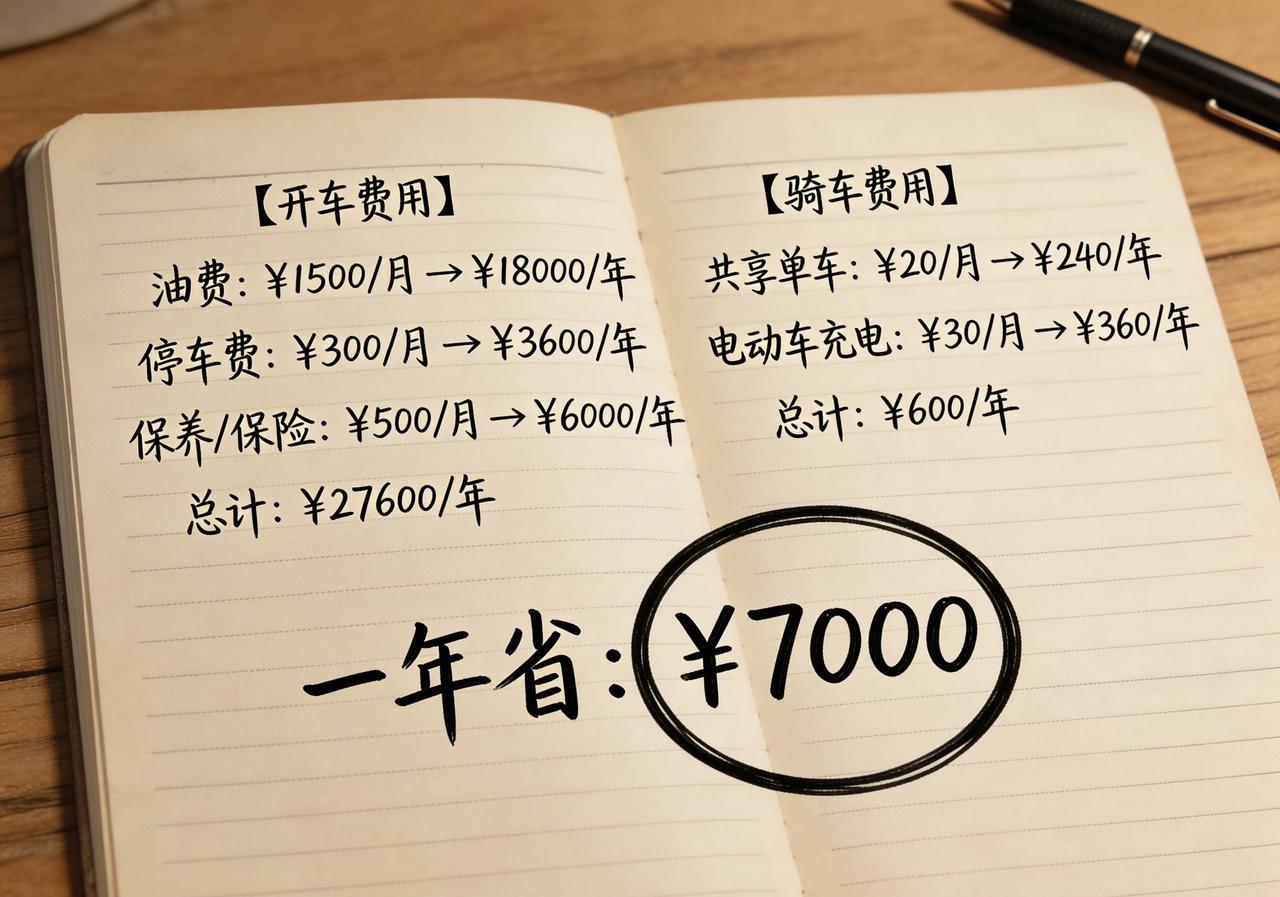 【开车费用】
油费：¥1500/月→¥18000/年
停车费：¥300/月→¥3600/年
保养/保险：¥500/月→¥6000/年
总计：¥27600/年
【骑车费用】
共享单车：¥20/月→¥240/年
电动车充电：¥30/月→¥360/年
总计：¥600/年
一年省：¥7000